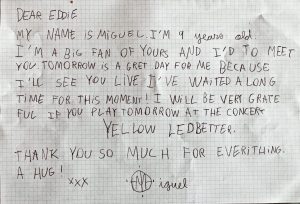 DEAR EDDIE
MY NAME IS MIGUEL. I'M 9 years old.
I'M A BIG FAN OF YOURS AND I'D TO MEET
YOU. TOMORROW IS A GRET DAY FOR ME BECAUSE
I'LL SEE YOU LIVE I'VE WAITED A LONG
TIME FOR THIS MOMENT! I WILL BE VERY GRATE
FUL IF YOU PLAY TOMORROW AT THE CONCERT
YELLOW LEDBETTER.
THANK YOU SO MUCH FOR EVERITHING.
A HUG!
xxx M iguel